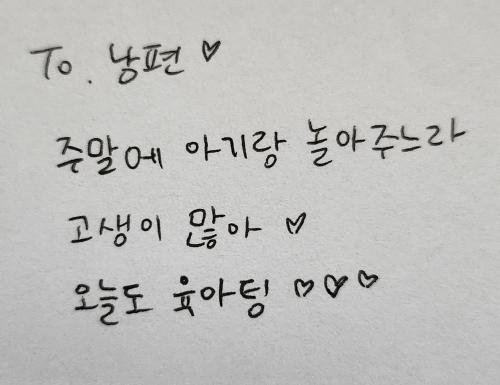 To. 낭편 ♡
주말에 아기랑 놀아주느라
고생이 많아 ♡
오늘도 육아팅 ♡♡♡